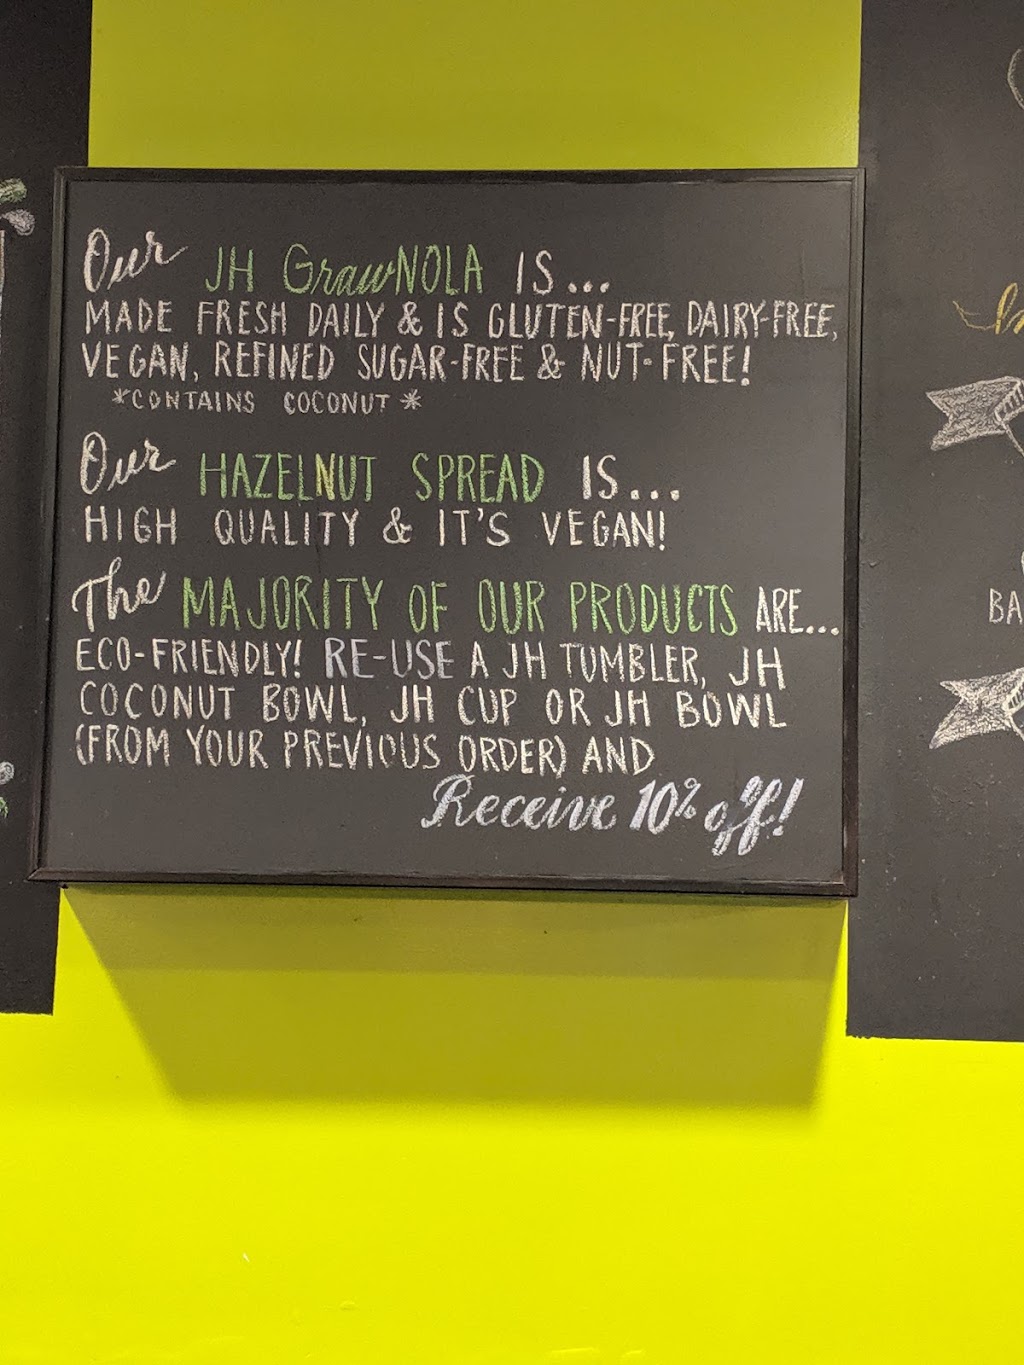 Our JH GrawNOLA IS...
MADE FRESH DAILY & IS GLUTEN-FREE, DAIRY-FREE,
VEGAN, REFINED SUGAR-FREE & NUT-FREE!
*CONTAINS COCONUT*
Our HAZELNUT SPREAD IS...
HIGH QUALITY & IT'S VEGAN!
The MAJORITY OF OUR PRODUCTS ARE...
ECO-FRIENDLY! RE-USE A JH TUMBLER, JH
COCONUT BOWL, JH CUP OR JH BOWL
(FROM YOUR PREVIOUS ORDER) AND
Receive 10% off!
BA